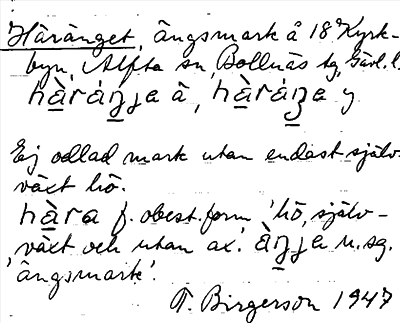 Häränget, ängsmark å 18 Kyrk-
byn, Alfta sn, Bollnäs tg, Gävl. l.
hàráŋ̱ja â, hàráŋ̱a y
Ej odlad mark utan endast själv-
växt hö.
hàra f. obest. form 'hö, själv-
växt och utan ax'. àŋ̱ja n. sg.
'ängsmark'.
T. Birgerson 1947